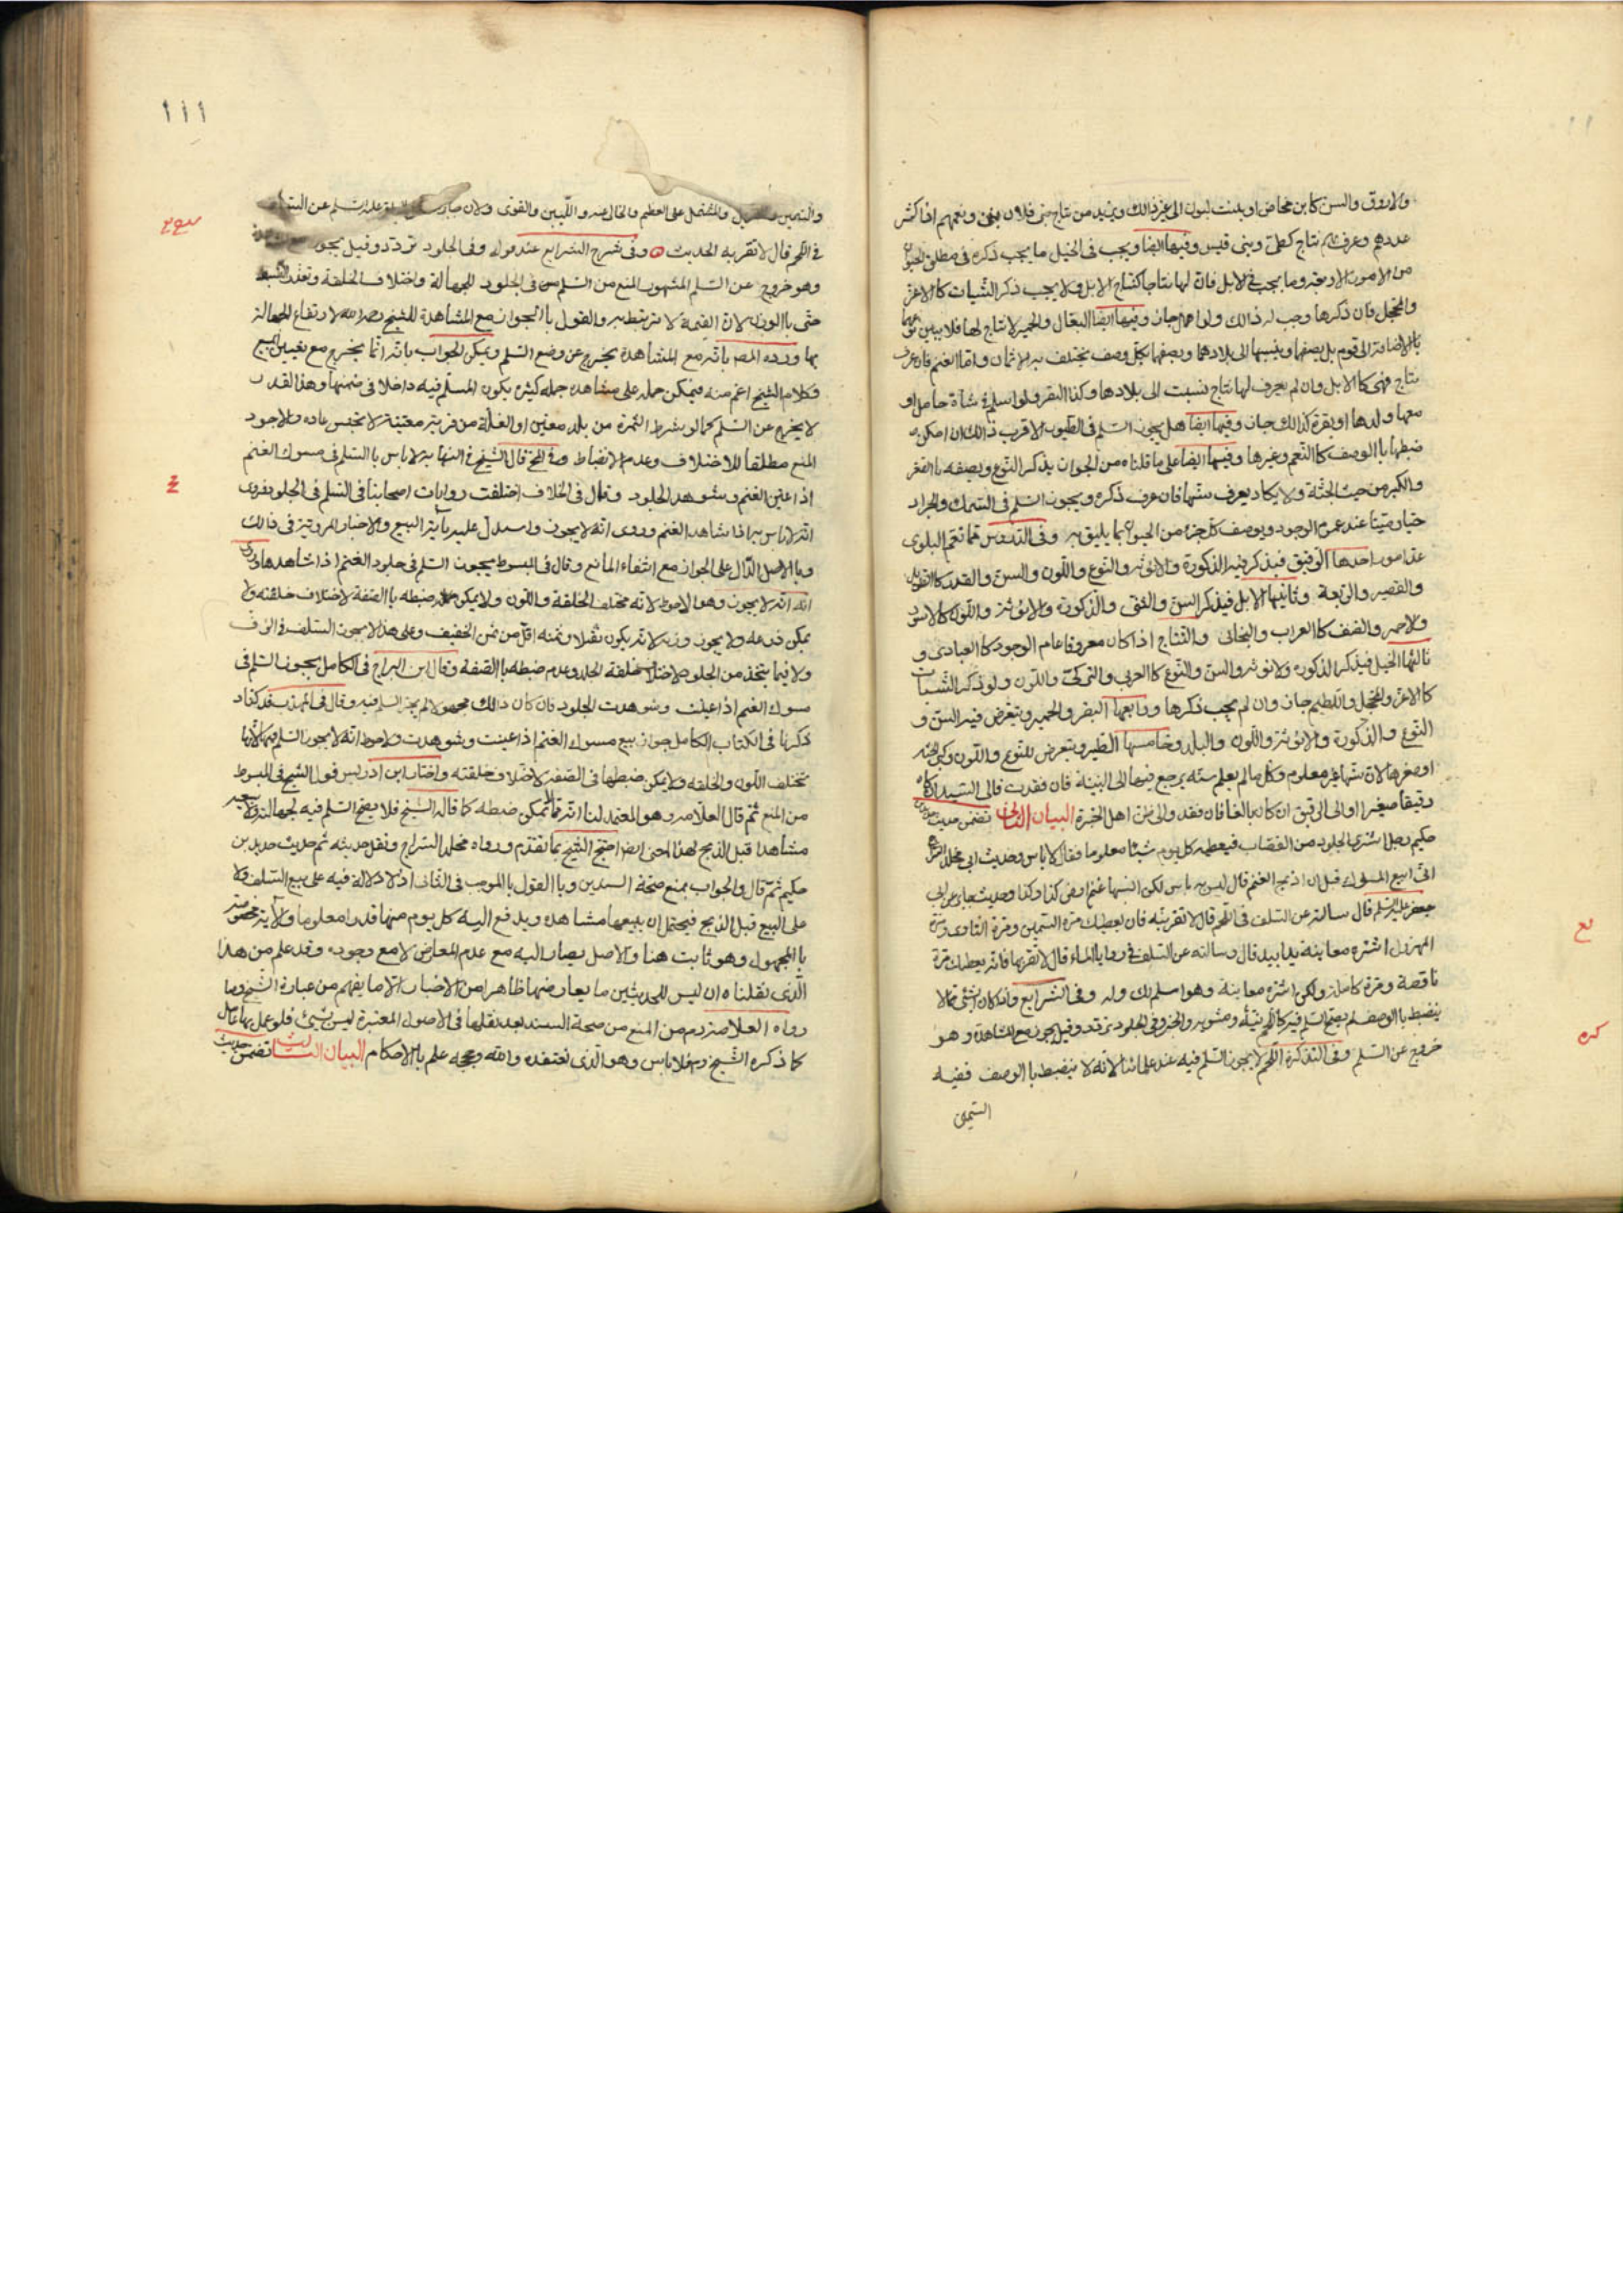 والازرق والسن كابن مخاض او بنت لبون الى غير ذالك ويزيد من نتاج بني فلان ونعمهم اذا كثر
عددهم وعرف لهم نتاج كطي وبني قيس وفيها ايضا ويجب في الخيل ما يجب ذكره في مطلق الحيوان
من الامور الاربعة وما يجب في الابل فان لها نتاجا كنتاج الابل ولا يجب ذكر الشيات كالاغر
والمحجل فان ذكرها وجب له ذالك ولو اهمل جاز وفيها ايضا البغال والحمير لا نتاج لها فلا يبين نوعهما
بالاضافة الى قوم بل يصفها وينسبها الى بلادهما ويصفها بكل وصف يختلف به الاثمان واما الغنم فان عرف
نتاج فهي كالابل وان لم يعرف لها نتاج نسبت الى بلادها وكذا البقر ولو اسلم في شاة حامل او
معها ولدها او بقرة كذالك جاز وفيها ايضا هل يجوز السلم في الطيور الاقرب ذالك ان امكن
ضبطها باالوصف كالنعم وغيرها وفيها ايضا على ما قلناه من الجواز يذكر النوع ويصفه باالصغر
والكبر من حيث الجثة ولا يكاد يعرف سنها فان عرف ذكره ويجوز السلم في السمك والجراد
حيا وميتا عند عموم الوجود ويوصف كل جزء من الحيوان بما يليق به وفي الدروس مما تعم البلوى
عدة امور احدها الرقيق فيذكر فيه الذكورة والانوثة والنوع واللون والسن والقد كالطويل
والقصير والربعة وثانيها الابل فيذكر السن والذكورة والانوثة واللون كالاسود
والاحمر والصنف كالعراب والبخاتي والنتاج اذا كان معروفا عام الوجود كالعبادي و
ثالثها الخيل فيذكر الذكورة والانوثة والسن والنوع كالعربي والتركي واللون ولو ذكر الشيات
كالاغر والمحجل واللطيم جاز وان لم يجب ذكرها ورابعها البقر والحمير ويتعرض فيه السن و
النوع والذكورة والانوثة واللون والبلد وخامسها الطير ويتعرض للنوع واللون وكبر الجثة
او صغرها لان سنها غير معلوم وكل ما لم يعلم سنه يرجع فيها الى البينة فان فقدت فالى السيد ان كان
رقيقا صغيرا او الى الرقيق ان كان بالغا فان فقد والى ظن اهل الخبرة البيان الثاني تضمن حديث
حكيم رجل اشترى الجلود من القصاب فيعطيه كل يوم شيئا معلوما فقال لا باس وحديث ابي مخلد السراج
اني ابيع المسوك قبل ان اذبح الغنم قال ليس به باس لكن انسبها غنم ارض كذا وكذا وحديث جابر عن ابي
جعفر عليه السلام قال سالته عن السلف في اللحم قال لا تقربنه فان يعطيك مرة السمين ومرة التاوي ومرة
المهزول اشتره معاينة يدا بيد قال وسالته عن السلف في روايا الماء قال لا تقربها فانه يعطيك مرة
ناقصة ومرة كاملة ولكن اشتره معاينة وهو اسلم لك وله وفي الشرايع واذا كان الشئ مما لا
ينضبط باالوصف لم يصح السلم فيه كاللحم نيئه ومشويه والخبز وفي الجلود تردد وقيل يجوز مع المشاهدة وهو
خروج عن السلم وفي التذكرة اللحم لا يجوز السلم فيه عند علمائنا لانه لا ينضبط باالوصف ففيه
السمين
١١١
والسمين والمشتمل على العظم والخالي عنه واللين والقوي ولان جابر عليه السلام عن السلف
في اللحم قال لا تقربه الحديث وفي شرح الشرايع عند قوله وفي الجلود تردد وقيل يجوز
وهو خروج عن السلم المشهور المنع من السلم في الجلود للجهالة واختلاف الخلقة وتعذر الضبط
حتى باالوزن لان القيمة لا ترتبط به والقول باالجواز مع المشاهدة للشيخ رحمه الله لارتفاع الجهالة
بها ورده المصـ بانه مع المشاهدة يخرج عن وضع السلم ويمكن الجواب بانه انما يخرج مع تعيين المبيع
وكلام الشيخ اعم منه فيمكن حمله على مشاهدة جملة كثيرة يكون المسلم فيه داخلا في ضمنها وهذا القدر
لا يخرج عن السلم كما لو شرط الثمرة من بلد معين او الغلة من قرية معينة لا تخيس عادة والاجود
المنع مطلقا للاختلاف وعدم الانضباط وفي المخ قال الشيخ في النهاية لا باس باالسلم في مسوك الغنم
اذا عين الغنم وشوهد الجلود وقال في الخلاف اختلفت روايات اصحابنا في السلم في الجلود فروى
انه لا باس به اذا شاهد الغنم وروى انه لا يجوز واستدل عليه بآية البيع والاخبار المروية في ذالك
وباالاصل الدال على الجواز مع انتفاء المانع وقال في المبسوط يجوز السلم في جلود الغنم اذا شاهدها وروى
انه لا يجوز وهو الاحوط لانه مختلف الخلقة واللون ولا يمكن ضبطه باالصفة لاختلاف خلقته ولا
يمكن ذرعه ولا يجوز وزنه لانه يكون ثقيلا وثمنه اقل من ثمن الخفيف وعلى هذا لا يجوز السلف في الرق
ولا فيما يتخذ من الجلود لاختلاف خلقة الجلد وعدم ضبطه باالصفة وقال ابن البراج في الكامل يجوز السلم في
مسوك الغنم اذا عينت وشوهدت الجلود فان كان ذالك مجهولا لم يجز السلم فيه وقال في المهذب قد كنا
ذكرنا في الكتاب الكامل جواز بيع مسوك الغنم اذا عينت وشوهدت والاحوط انه لا يجوز السلم فيها لانها
تختلف اللون والخلقة ولا يمكن ضبطها في الصفة لاختلاف خلقته واختار ابن ادريس قول الشيخ في المبسوط
من المنع ثم قال العلامة وهو المعتمد لنا انه مما لا يمكن ضبطه كما قاله الشيخ فلا يصح السلم فيه لجهالته
مشاهدا قبل الذبح لهذا المعنى ايضا احتج الشيخ بما تقدم ورواه مخلد السراج ونقل حديثه ثم حديث حديد بن
حكيم ثم قال والجواب بمنع صحة السندين وباالقول باالموجب في الثاني اذ لا دلالة فيه على بيع السلف ولا
على البيع قبل الذبح فيحتمل ان يبيعها مشاهدة ويدفع اليه كل يوم منها قدرا معلوما
باالمجهول وهو ثابت هنا والاصل يصار اليه مع عدم المعارض لا مع وجوده وقد علم من هذا
الذي نقلناه ان ليس للحديثين ما يعارضهما ظاهرا من الاخبار الا ما يفهم من عبارة الشيخ وما
رواه العلامة من المنع من صحة السند بعد نقلها في الاصول المعتبرة ليس بشيئ فلو عمل بها عامل
كما ذكره الشيخ فلا باس وهو الذي نعتقده والله وحججه علم باالاحكام البيان الثالث تضمن حديث